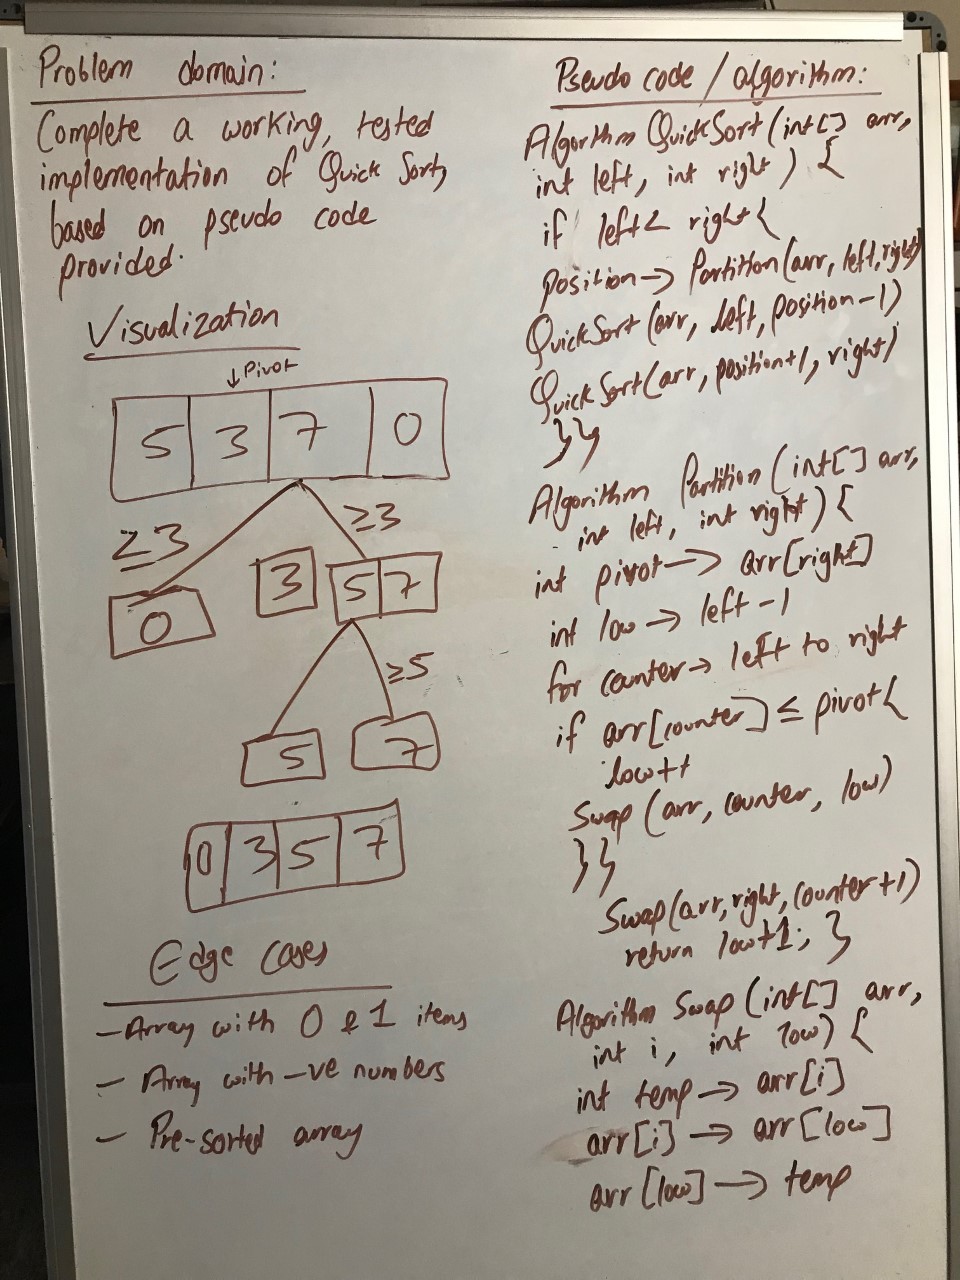 Problem domain:
Complete a working, tested
implementation of Quick Sort,
based on pseudo code
provided.
Visualization
↓Pivot
5 3 7 0
≥3 ≥3
0 3 5 7
≥5
5 7
0 3 5 7
Edge cases
- Array with 0 & 1 items
- Array with -ve numbers
- Pre-sorted array
Pseudo code / algorithm:
Algorthm QuickSort (int[] arr,
int left, int right) {
if left < right {
position → Partition (arr, left, right)
QuickSort (arr, left, position-1)
QuickSort (arr, position+1, right)
}}
Algorithm Partition (int[] arr,
int left, int right) {
int pivot → arr[right]
int low → left -1
for counter → left to right
if arr[counter] ≤ pivot {
low++
Swap (arr, counter, low)
}}
Swap (arr, right, counter+1)
return low+1; }
Algorithm Swap (int[] arr,
int i, int low) {
int temp → arr[i]
arr[i] → arr[low]
arr[low] → temp